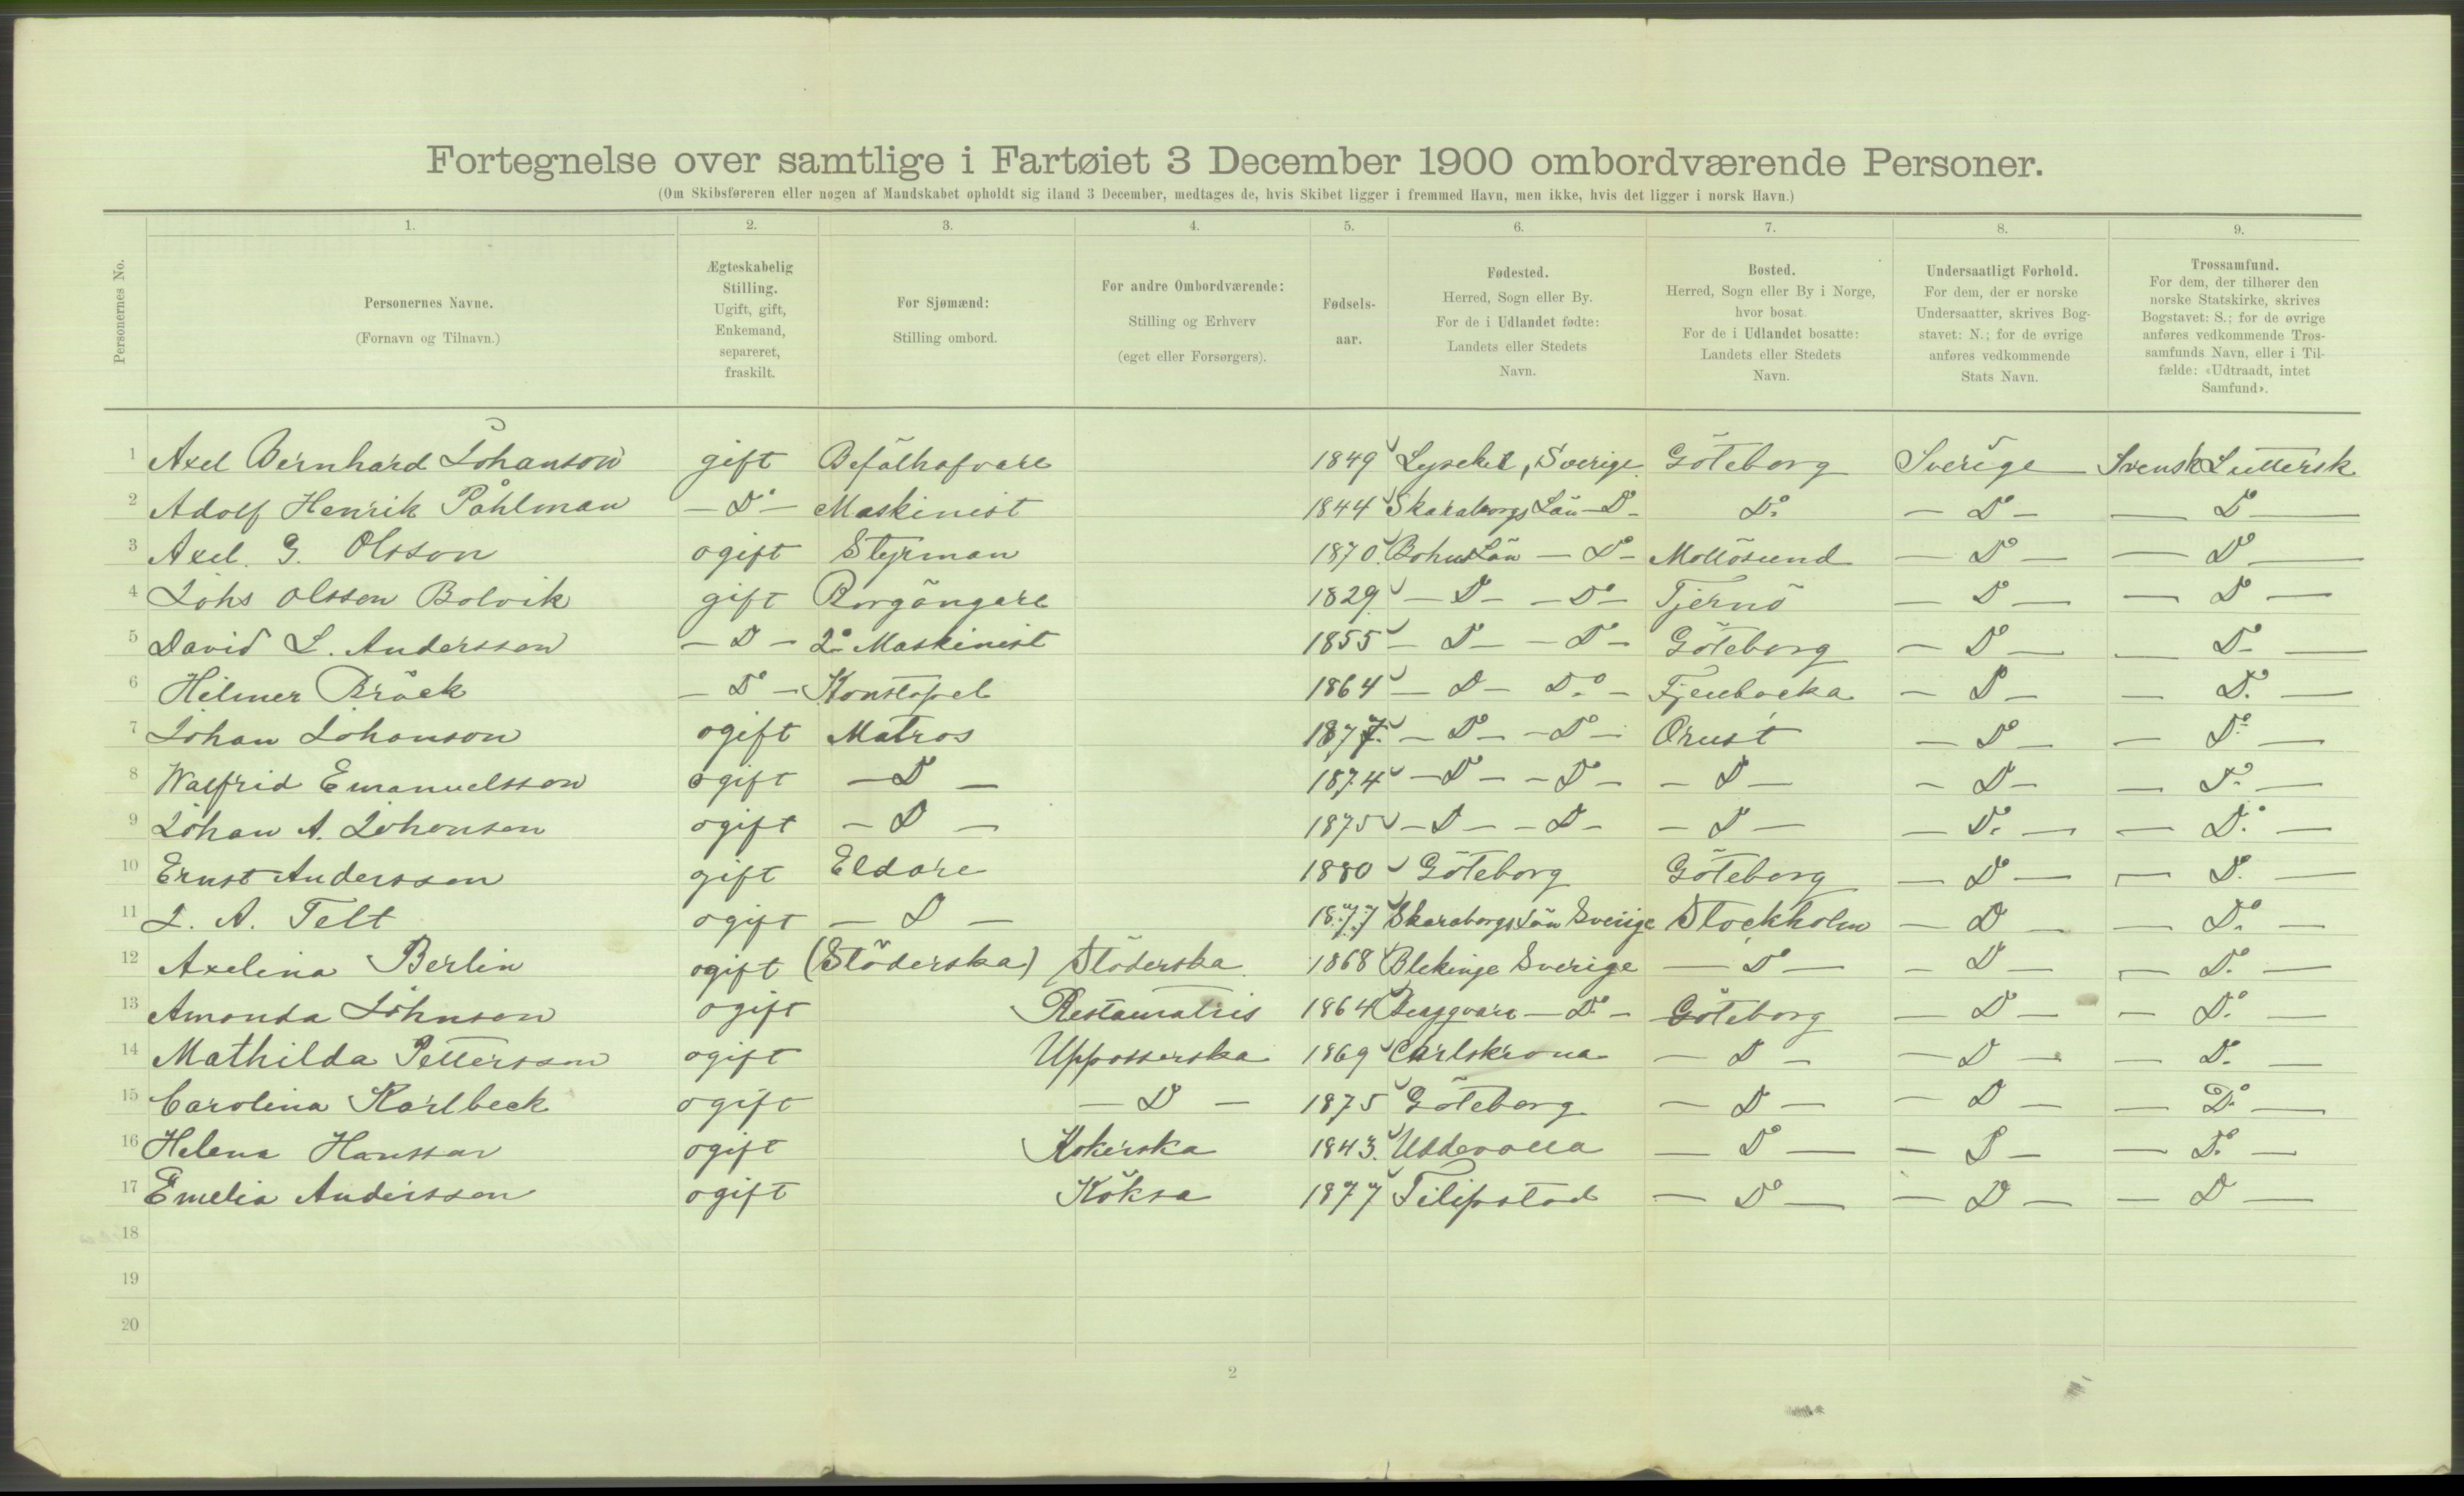 Fortegnelse over samtlige i Fartøiet 3 December 1900 ombordværende Personer.
(Om Skibsføreren eller nogen af Mandskabet opholdt sig iland 3 December, medtages de, hvis Skibet ligger i fremmed Havn, men ikke, hvis det ligger i norsk Havn.)
Personernes No.
1. 2. 3. 4. 5. 6. 7. 8. 9.
Personernes Navne.
(Fornavn og Tilnavn.)
Ægteskabelig
Stilling.
Ugift, gift,
Enkemand,
separeret,
fraskilt.
For Sjømænd:
Stilling ombord.
For andre Ombordværende:
Stilling og Erhverv
(eget eller Forsørgers).
Fødsels-
aar.
Fødested.
Herred, Sogn eller By.
For de i Udlandet fødte:
Landets eller Stedets
Navn.
Bosted.
Herred, Sogn eller By i Norge,
hvor bosat.
For de i Udlandet bosatte:
Landets eller Stedets
Navn.
Undersaatligt Forhold.
For dem, der er norske
Undersaatter, skrives Bog-
stavet: N.; for de øvrige
anføres vedkommende
Stats Navn.
Trossamfund.
For dem, der tilhører den
norske Statskirke, skrives
Bogstavet: S.; for de øvrige
anføres vedkommende Tros-
samfunds Navn, eller i Til-
fælde: «Udtraadt, intet
Samfund».
1 Axel Bernhard Johanson gift Befälhafvare 1849 Lysekil, Sverige Göteborg Sverige Svensk Luttersk
2 Adolf Henrik Påhlman – Do – Maskinist 1844 Skaraborgs Län – Do – Do – Do – – Do –
3 Axel. G. Olsson ogift Styrman 1870. Bohus Län – Do – Mollösund – Do – – Do –
4 Johs Olsson Bolvik gift Rorgängare 1829. – Do – – Do – Tjernö – Do – – Do –
5 David L. Andersson – D – 2o Maskinist 1855 – Do – – Do – Göteborg – Do – – Do –
6 Hilmer Bräck – Do – Konstapel 1864 – D – Do – Fjellbacka – Do – – Do –
7 Johan Johanson ogift Matros 1877. – Do – – Do – Orust – Do – – Do –
8 Walfrid Emanuelsson ogift – Do – 1874 – Do – – Do – – Do – – D – – Do –
9 Johan A. Johonson ogift – Do – 1875 – D – – D – – Do – – Do – – Do –
10 Ernst Andersson gift Eldare 1880 Göteborg Göteborg – Do – – Do –
11 J. A. Telt ogift – D – 1877 Skaraborgs Län Sverige Stockholm – D – – Do –
12 Axelina Berlin ogift (Stöderska) Stöderska 1868 Blekinge Sverige – Do – – Do – – Do –
13 Amonda Johnson ogift Restauratris 1864 – Do – Göteborg – Do – – Do –
14 Mathilda Pettersson ogift Uppasserska 1869 Carlskrona – D – – D – – Do –
15 Carolina Karlbeck ogift – D – 1875 Göteborg – D – – Do – – Do –
16 Helena Hansson ogift Kokerska 1843. Uddevalla – Do – – Do – – Do –
17 Emelia Andersson ogift Köksa 1877 Filipstad – Do – – D – – Do –
18
19
20
2